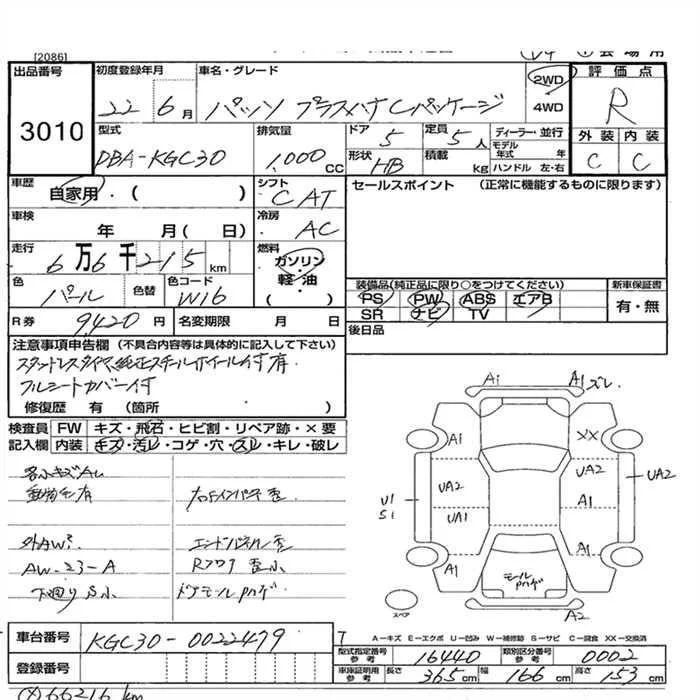 [2086]
出品番号
3010
初度登録年月
22 6月
車名・グレード
パッソ プラスハナCパッケージ
2WD
4WD
評価点
R
外装 内装
C C
型式
DBA-KGC30
排気量
1,000 CC
ドア 5
定員 5人
形状 HB
積載 kg
ディーラー・並行
モデル年式 年
ハンドル 左・右
車歴
自家用・( )
シフト
CAT
セールスポイント (正常に機能するものに限ります)
車検
年 月( 日)
冷房
AC
走行
6万6千215km
燃料
ガソリン・
軽・油
( )
色
パール
色替
色コード
W16
装備品(純正品に限り○をつけてください) 新車保証書
PS PW ABS エアB
SR ナビ TV
有・無
R券 9,420円
名変期限 月 日
後日品
注意事項申告欄 (不具合内容等は具体的に記入して下さい)
スタットレスタイヤ、純正スチールホイール付有
フルシートカバー付
修復歴 有 (箇所 )
検査員 FW キズ・飛石・ヒビ割・リペア跡・×要
記入欄 内装 キズ・汚レ・コゲ・穴・スレ・キレ・破レ
エンドパネル歪
AW-23-A
A1
A1 ズレ
A1
XX
UA2
UA2
UA2
U1
S1
UA1
A1
A1
A1
モール
A2
スペア
車台番号 KGC30-0022479
登録番号
A－キズ E－エクボ U－凹み W－補修跡 S－サビ C－腐食 XX－交換済
型式指定番号
参考
16440
類別区分番号
参考
0002
車庫証明用
参考
長さ 365cm 幅 166cm 高さ 153cm
66216 km